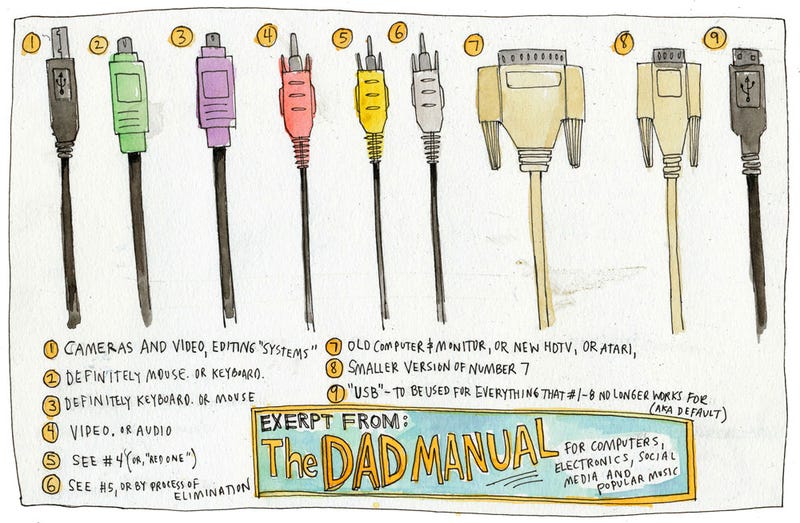 1 2 3 4 5 6 7 8 9
1 CAMERAS AND VIDEO, EDITING "SYSTEMS"
2 DEFINITELY MOUSE. OR KEYBOARD.
3 DEFINITELY KEYBOARD. OR MOUSE
4 VIDEO. OR AUDIO
5 SEE #4 (OR, "RED ONE")
6 SEE #5, OR BY PROCESS OF
ELIMINATION
7 OLD COMPUTER & MONITOR, OR NEW HDTV, OR ATARI,
8 SMALLER VERSION OF NUMBER 7
9 "USB" - TO BE USED FOR EVERYTHING THAT #1-8 NO LONGER WORKS FOR
(AKA DEFAULT)
EXERPT FROM:
The DAD MANUAL
FOR COMPUTERS,
ELECTRONICS, SOCIAL
MEDIA AND
POPULAR MUSIC